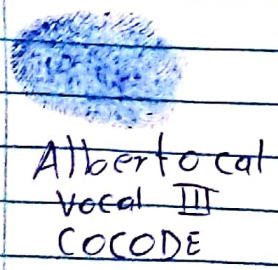 Alberto cal
Vocal III
COCODE